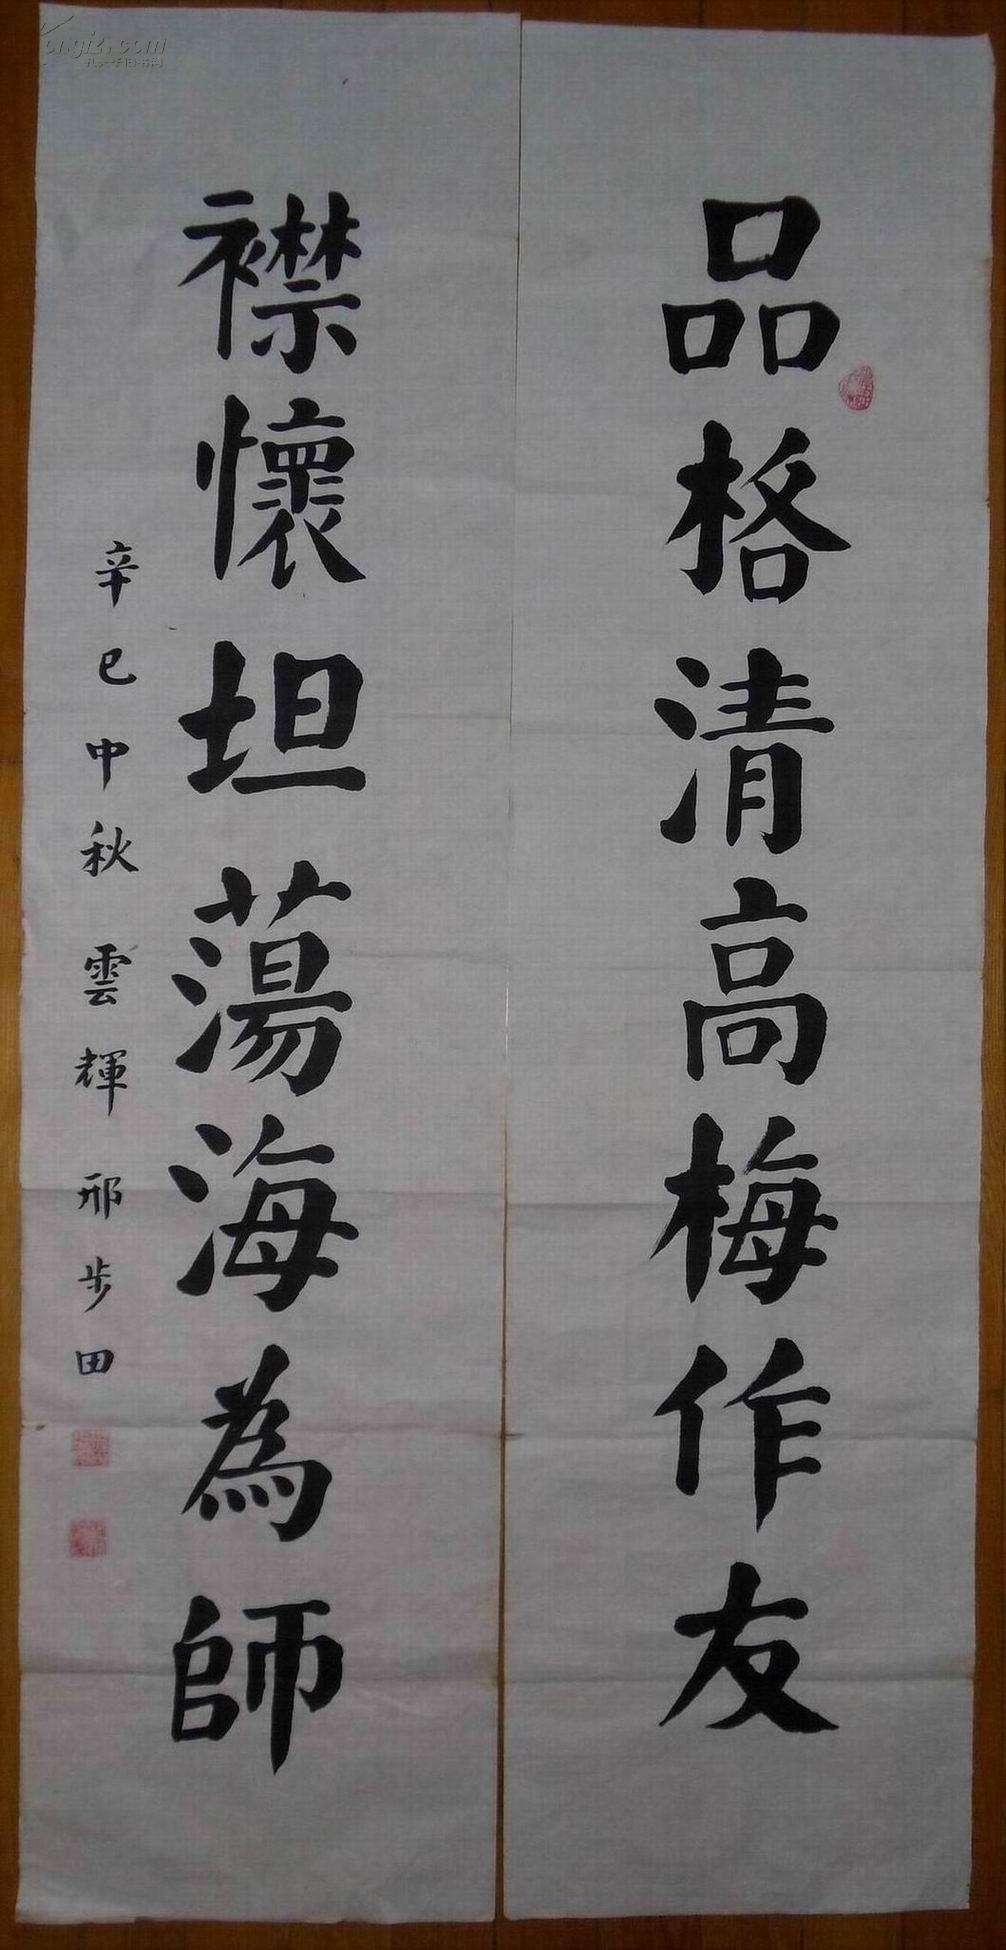 品格清高梅作友
襟懷坦蕩海為師
辛巳中秋雲輝邢步田